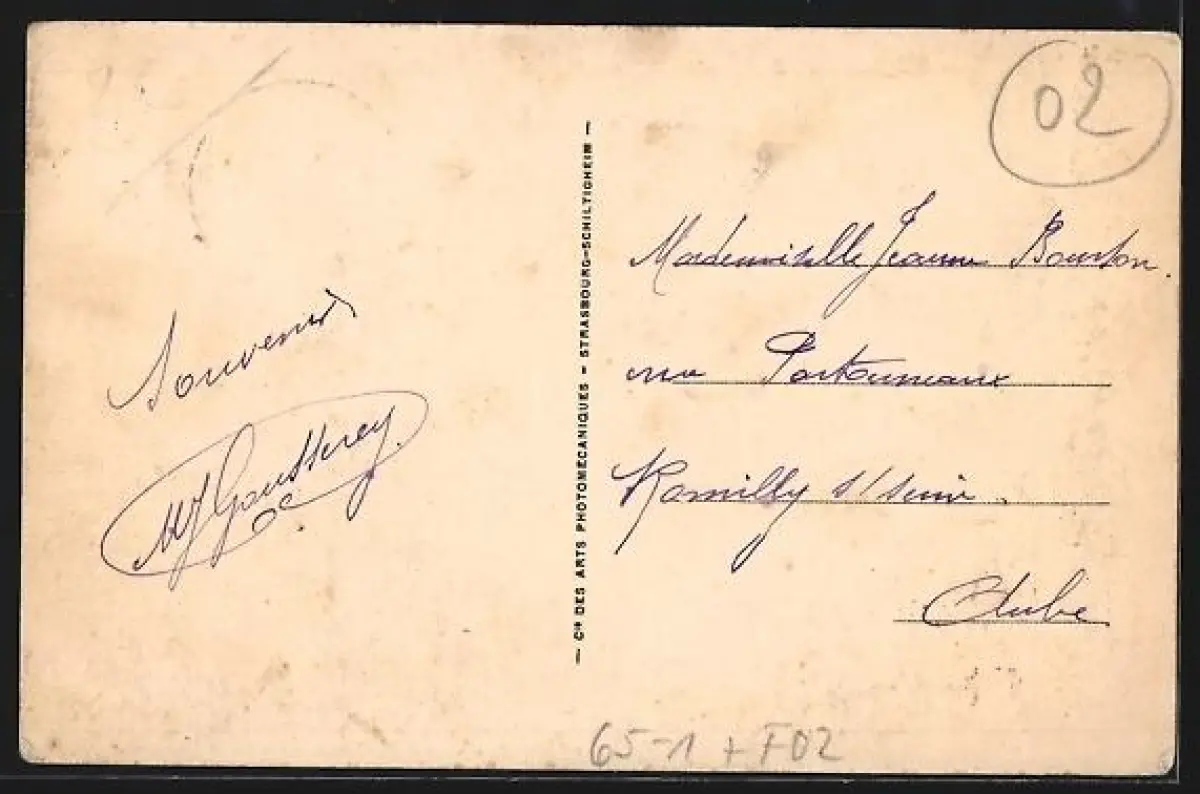 Souvenir
— Cie DES ARTS PHOTOMÉCANIQUES – STRASBOURG–SCHILTIGHEIM —
02
Mademoiselle Jeanne Bourson.
rue
Romilly s/ seine.
Aube
65-1 + F02